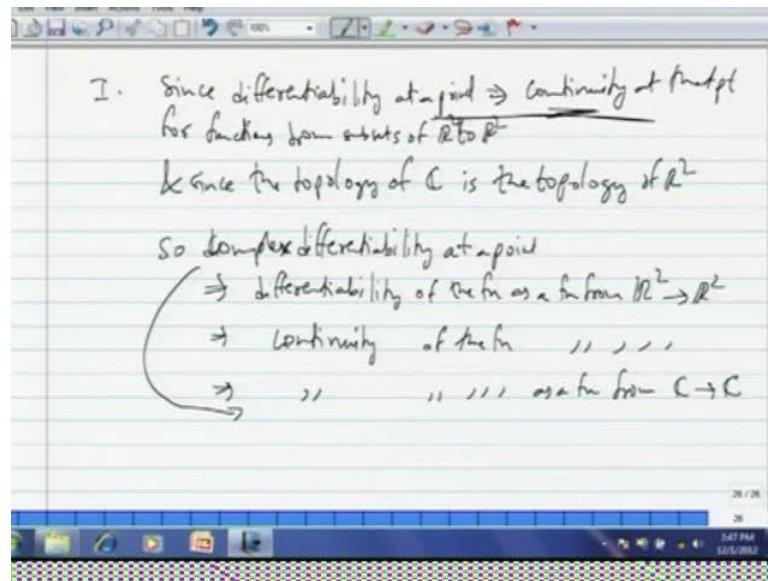 100%
I. Since differentiability at a point ⇒ continuity at that pt
for functions from subsets of ℝ² to ℝ²
& since the topology of ℂ is the topology of ℝ²
So complex differentiability at a point
⇒ differentiability of the fn as a fn from ℝ² → ℝ²
⇒ continuity of the fn ,, , , ,
⇒ ,, ,, , , , as a fn from ℂ → ℂ
26 / 26
26
2:47 PM
12/5/2012